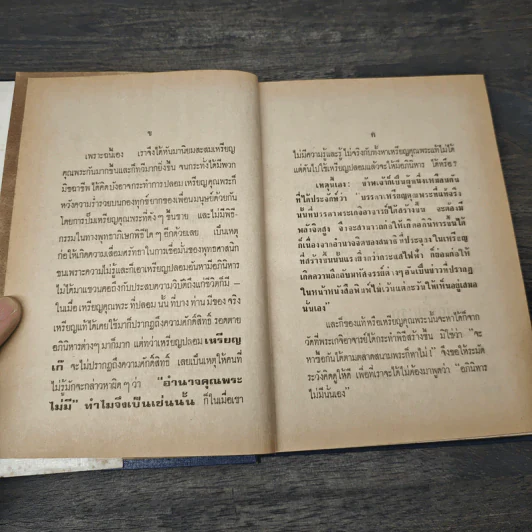 ข
เพราะฉนี้เอง เราจึงได้หันมานิยมสะสมเหรียญ
คุณพระกันมากขึ้นและก็ทวีมากยิ่งขึ้น จนกระทั่งได้มีพวก
มิจฉาชีพ ได้คิดบังอาจกระทำการปลอม เหรียญคุณพระก็
หวังความร่ำรวยบนกองทุกข์ยากของเพื่อนมนุษย์ด้วยกัน
โดยการปั๊มเหรียญคุณพระที่ดังๆ ขึ้นขาย และไม่มีพิธี-
กรรมในทางพุทธาภิเษกพิธีใด ๆ อีกด้วยเลย เป็นเหตุ
ก่อให้เกิดความเสื่อมศรัทธาในการเชื่อมั่นของพุทธศาสนิก
ชนเพราะความไม่รู้และก็เอาเหรียญปลอมอันหามีอภินิหาร
ไม่ได้มาแขวนคอถึงกับประสบความวิบัติถึงแก่ชีวิตก็มี –
ในเมื่อ เหรียญคุณพระ ที่ปลอม นั้น ที่บาง ท่าน มี ของ จริง
เหรียญแท้ได้เคยใช้มาก็ปรากฏถึงความศักดิ์สิทธิ์ รอดตาย
อภินิหารต่างๆ มาก็มาก แต่ทว่าเหรียญปลอม เหรียญ
เก๊ จะไม่ปรากฏถึงความศักดิ์สิทธิ์ เลยเป็นเหตุให้คนที่
ไม่รู้มักจะกล่าวหาผิด ๆ ว่า "อำนาจคุณพระ
ไม่มี" ทำไมจึงเป็นเช่นนั้น ก็ในเมื่อเขา
ค
ไม่มีความรู้และรู้ ไม่จริงกับทั้งหาเหรียญคุณพระแท้ไม่ได้
แต่ดันไปใช้เหรียญปลอมแล้วจะให้มีอภินิหาร ได้หรือ ?
เหตุนี้เอง ข้าพเจ้าก็เป็นผู้หนึ่งเหมือนกัน
ที่ได้ประจักษ์ว่า "บรรดาเหรียญคุณพระที่แท้จริง
นั้นที่บรรดาพระเกจิอาจารย์ได้สร้างขึ้น จะต้องมี
พลังจิตสูง จึงจะสามารถก่อให้เกิดอภินิหารขึ้นได้
ก็เนื่องจากอำนาจจิตของสมาธิ ที่ประจุลงในเหรียญ
ที่สร้างขึ้นนั้นเอง
เกิดความศักดิ์สิทธิ์ต่างๆ อันเป็นข่าวที่ปรากฏ
ในหน้าหนังสือพิมพ์ไม่เว้นแต่ละวันให้เห็นอยู่เสมอ
นั้นเอง"
และก็ของแท้หรือเหรียญคุณพระนั้นจะหาได้ก็จาก
วัดที่พระเกจิอาจารย์ได้กระทำพิธีสร้างขึ้น มิใช่ว่า "จะ
หาซื้อกันได้ตามตลาดสนามพระก็หาไม่ !" จึงขอให้ระมัด
ระวังคิดดูให้ดี เพื่อที่เราจะได้ไม่ต้องมาพูดว่า "อภินิหาร
ไม่มีนั่นเอง"